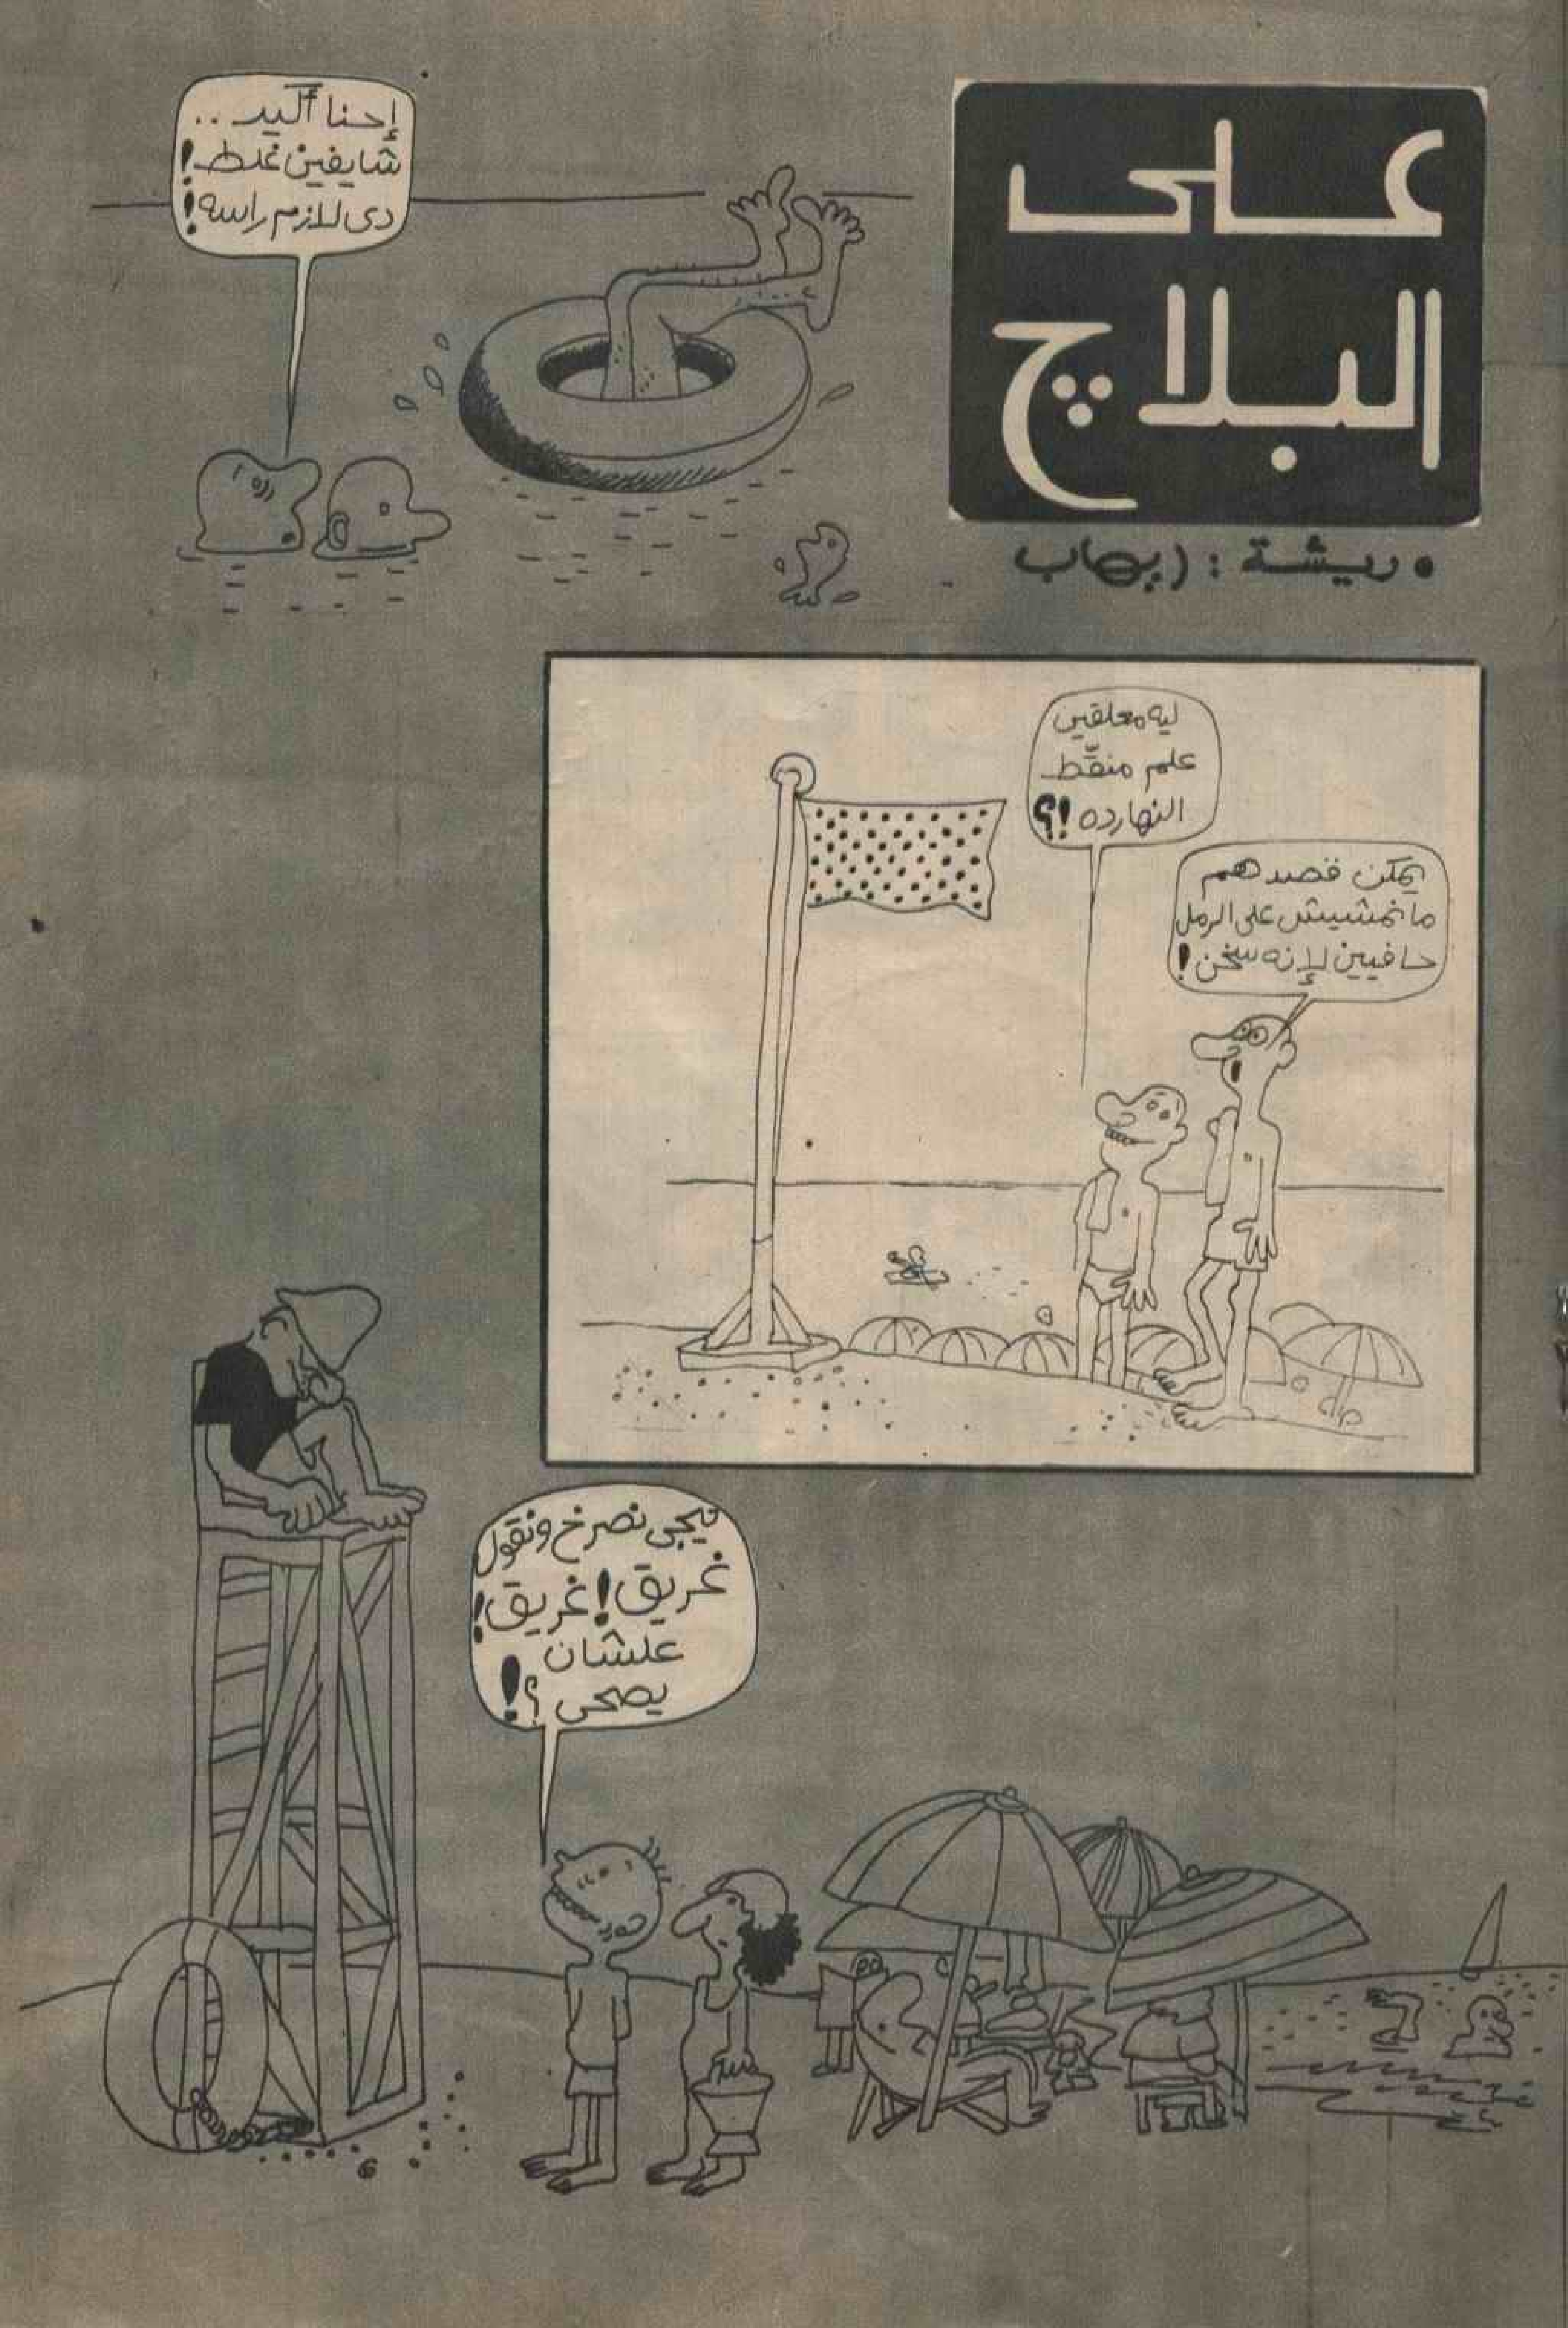 على
البلاچ
• ريشة : إيهاب
إحنا أكيد ..
شايفين غلط !
دى لازم راسه !
ليه معلقين
علم منقّط
النهارده !؟
يمكن قصدهم
مانمشيش على الرمل
حافيين لإنه سخن !
تيجى نصرخ ونقول
غريق ! غريق !
علشان
يصحى ؟!